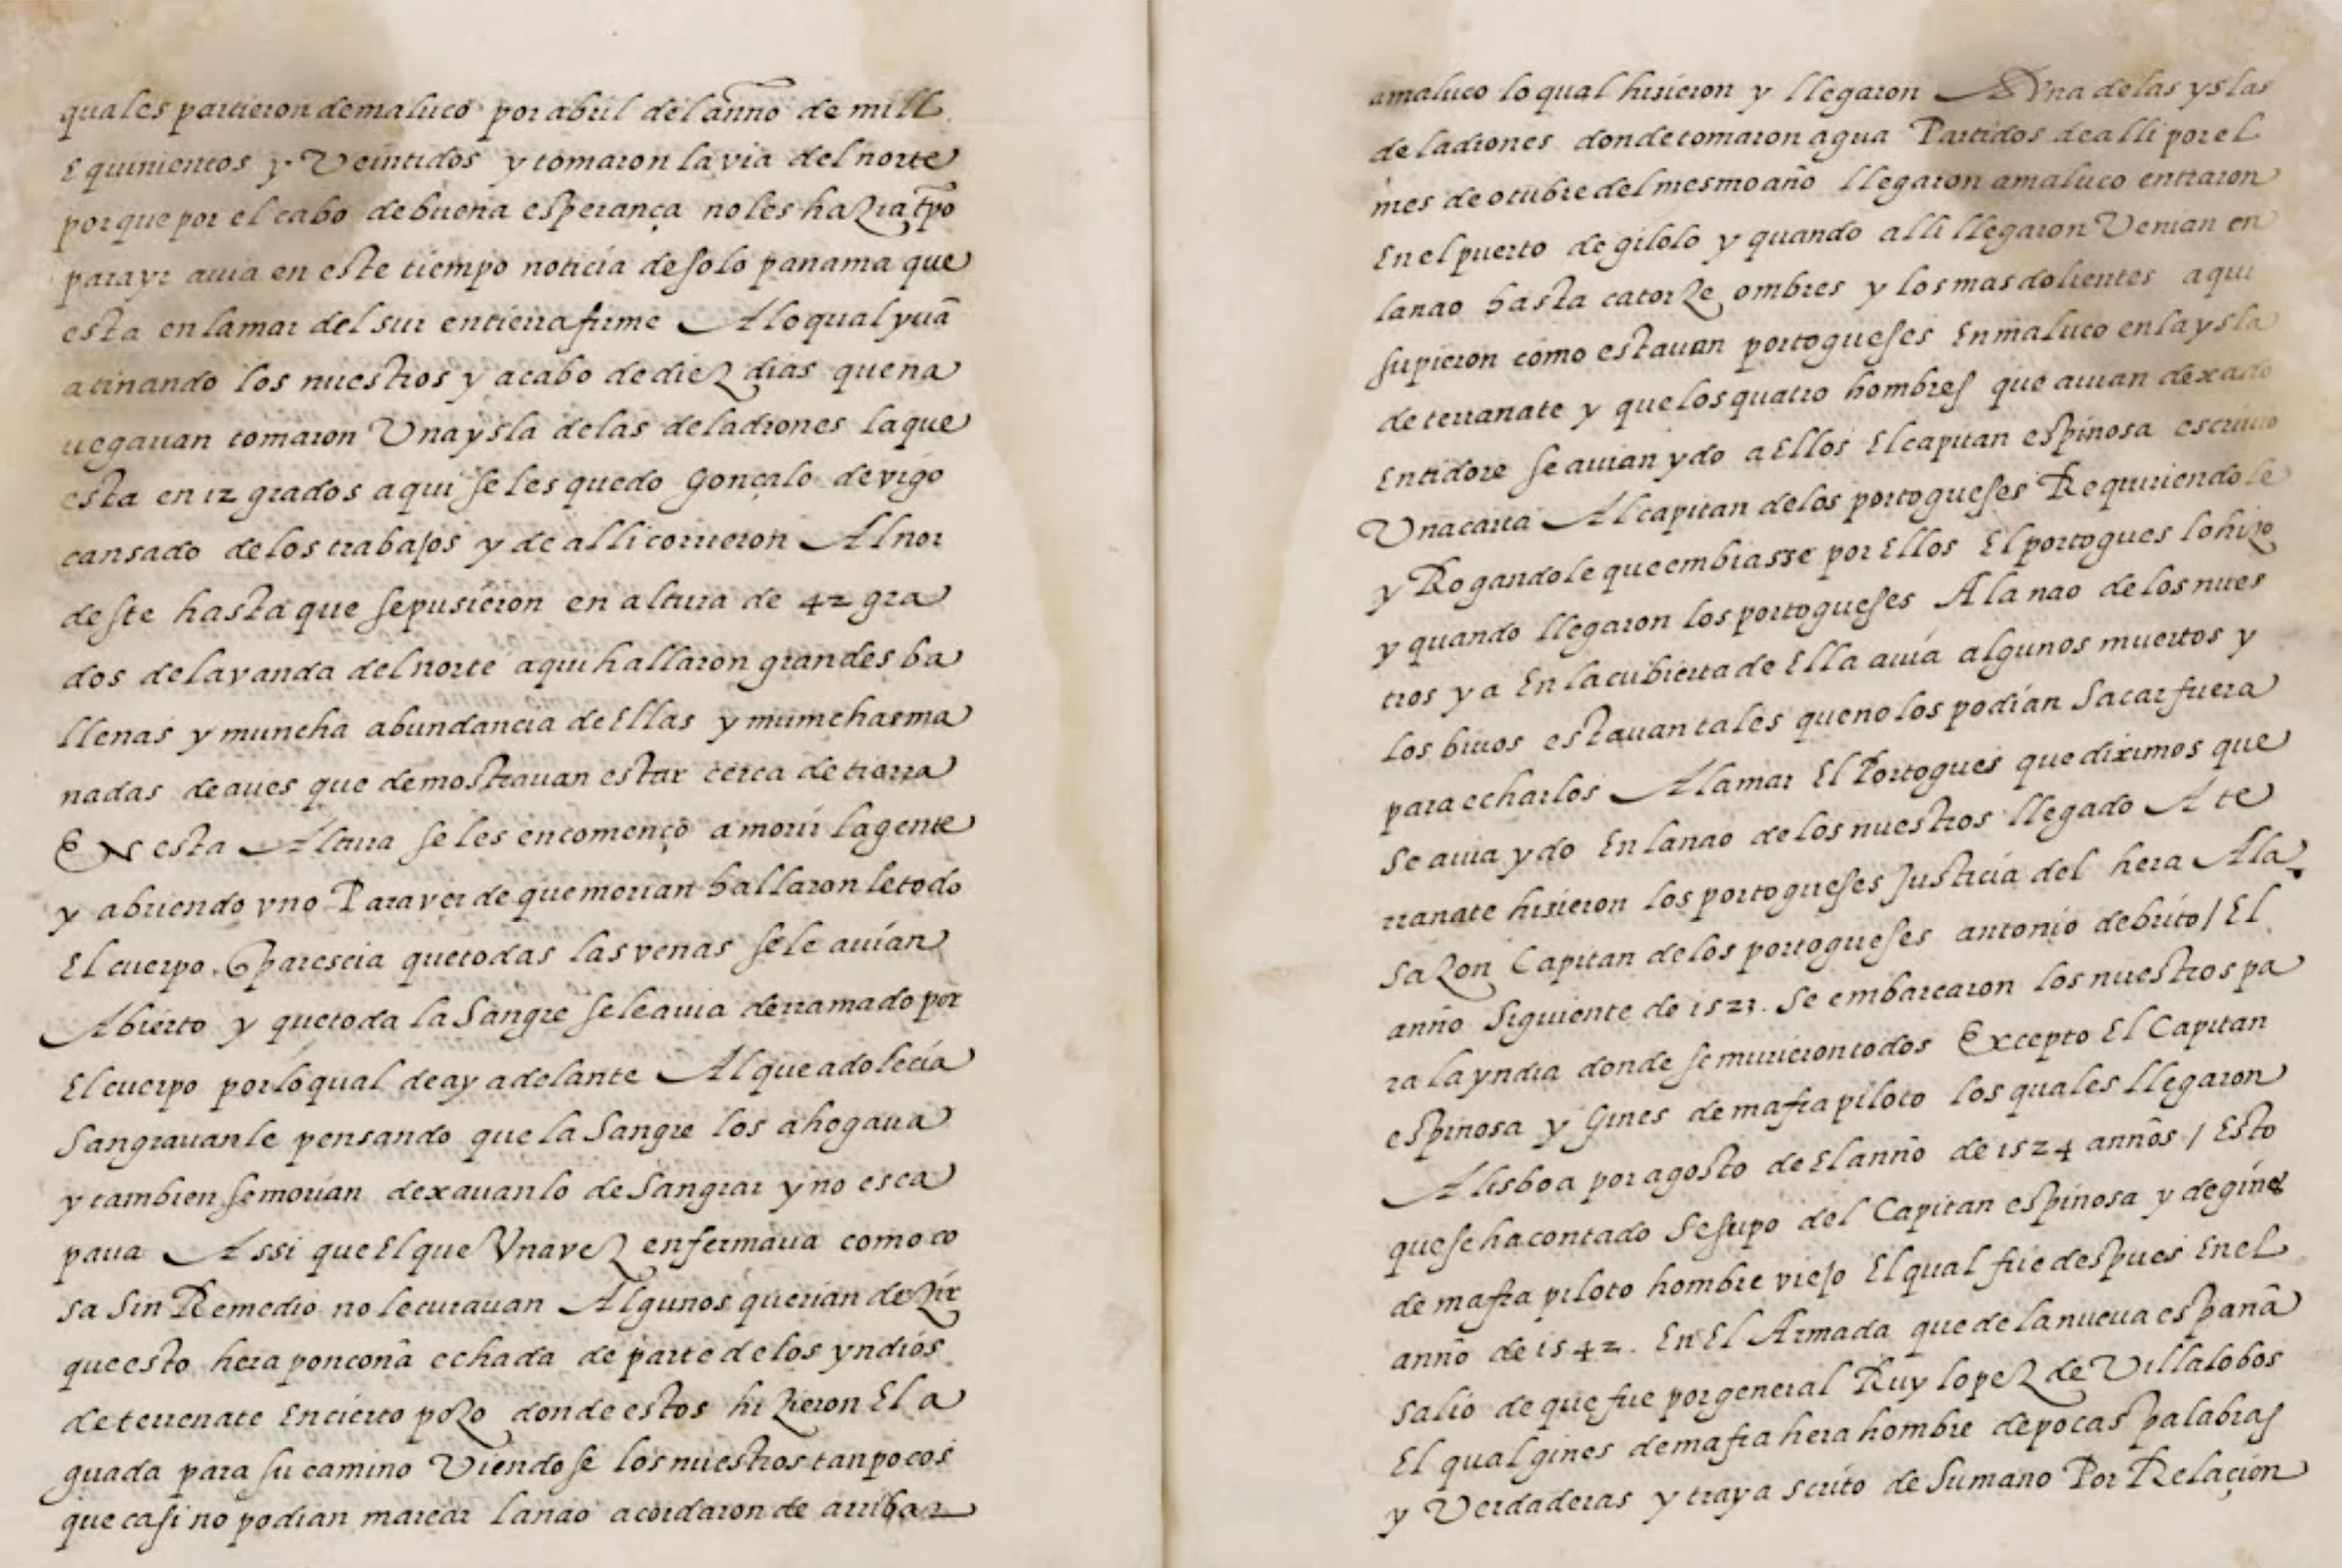 quales partieron de maluco por abril del anno de mill
E quinientos y Veintidos y tomaron la via del norte
porque por el cabo de buena esperança no les haZia tpo
para yr auia en este tiempo noticia de solo panama que
esta en la mar del sur en tierra firme A lo qual yuã
atinando los nuestros y acabo de dieZ dias que na
uegauan tomaron Vna ysla de las de ladrones la que
esta en 12 grados aqui se les quedo gonçalo de vigo
cansado de los trabajos y de alli corrieron Al nor
deste hasta que se pusieron en altura de 42 gra
dos de la vanda del norte aqui hallaron grandes ba
llenas y muncha abundancia de Ellas y munchas ma
nadas de aues que demostrauan estar cerca de tierra
EN esta Altura se les encomenço a morir la gente
y abriendo vno Para ver de que morian hallaron le todo
El cuerpo. Q paresçia que todas las venas se le auian
Abierto y que toda la Sangre se le auia derramado por
El cuerpo por lo qual de ay adelante Al que adolecia
Sangrauanle pensando que la Sangre los ahogaua
y tambien se morian dexauanlo de Sangrar y no esca
paua Assi que El que Vna veZ enfermaua como co
sa Sin Remedio no le curauan Algunos querian deZir
que esto hera ponçoña echada de parte de los yndios
de terrenate En cierto poZo donde estos hiZieron El a
guada para su camino Viendo se los nuestros tan pocos
que casi no podian marear la nao acordaron de arribar
a maluco lo qual hisieron y llegaron A Vna de las yslas
de ladrones donde tomaron agua Partidos de alli por el
mes de otubre del mesmo año llegaron a maluco entraron
En el puerto de gilolo y quando alli llegaron Venian en
la nao hasta catorZe ombres y los mas dolientes aqui
supieron como estauan portogueses En maluco en la ysla
de terranate y que los quatro hombres que auian dexado
En tidore se auian ydo a Ellos El capitan espinosa escriuio
Vna carta Al capitan de los portogueses Requiriendole
y Rogandole que embiasse por Ellos El portogues lo hizo
y quando llegaron los portogueses A la nao de los nues
tros ya En la cubierta de Ella auia algunos muertos y
los biuos estauan tales que no los podian Sacar fuera
para echarlos A la mar El Portogues que diximos que
se auia ydo En la nao de los nuestros llegado A te
rranate hisieron los portogueses Justicia del hera A la
saZon Capitan de los portogueses antonio de brito / El
anño Siguiente de 1523. Se embarcaron los nuestros pa
ra la yndia donde se murieron todos Excepto El Capitan
espinosa y Gines de mafra piloto los quales llegaron
A lisboa por agosto de El anño de 1524 annõs / Esto
que se ha contado Se supo del Capitan espinosa y de gines
de mafra piloto hombre viejo El qual fue despues En el
anño de 1542. En El Armada que de la nueua españa
salio de que fue por general Ruy lopeZ de Villalobos
El qual gines de mafra hera hombre de pocas palabras
y Verdaderas y traya scrito de Su mano Por Relaçion